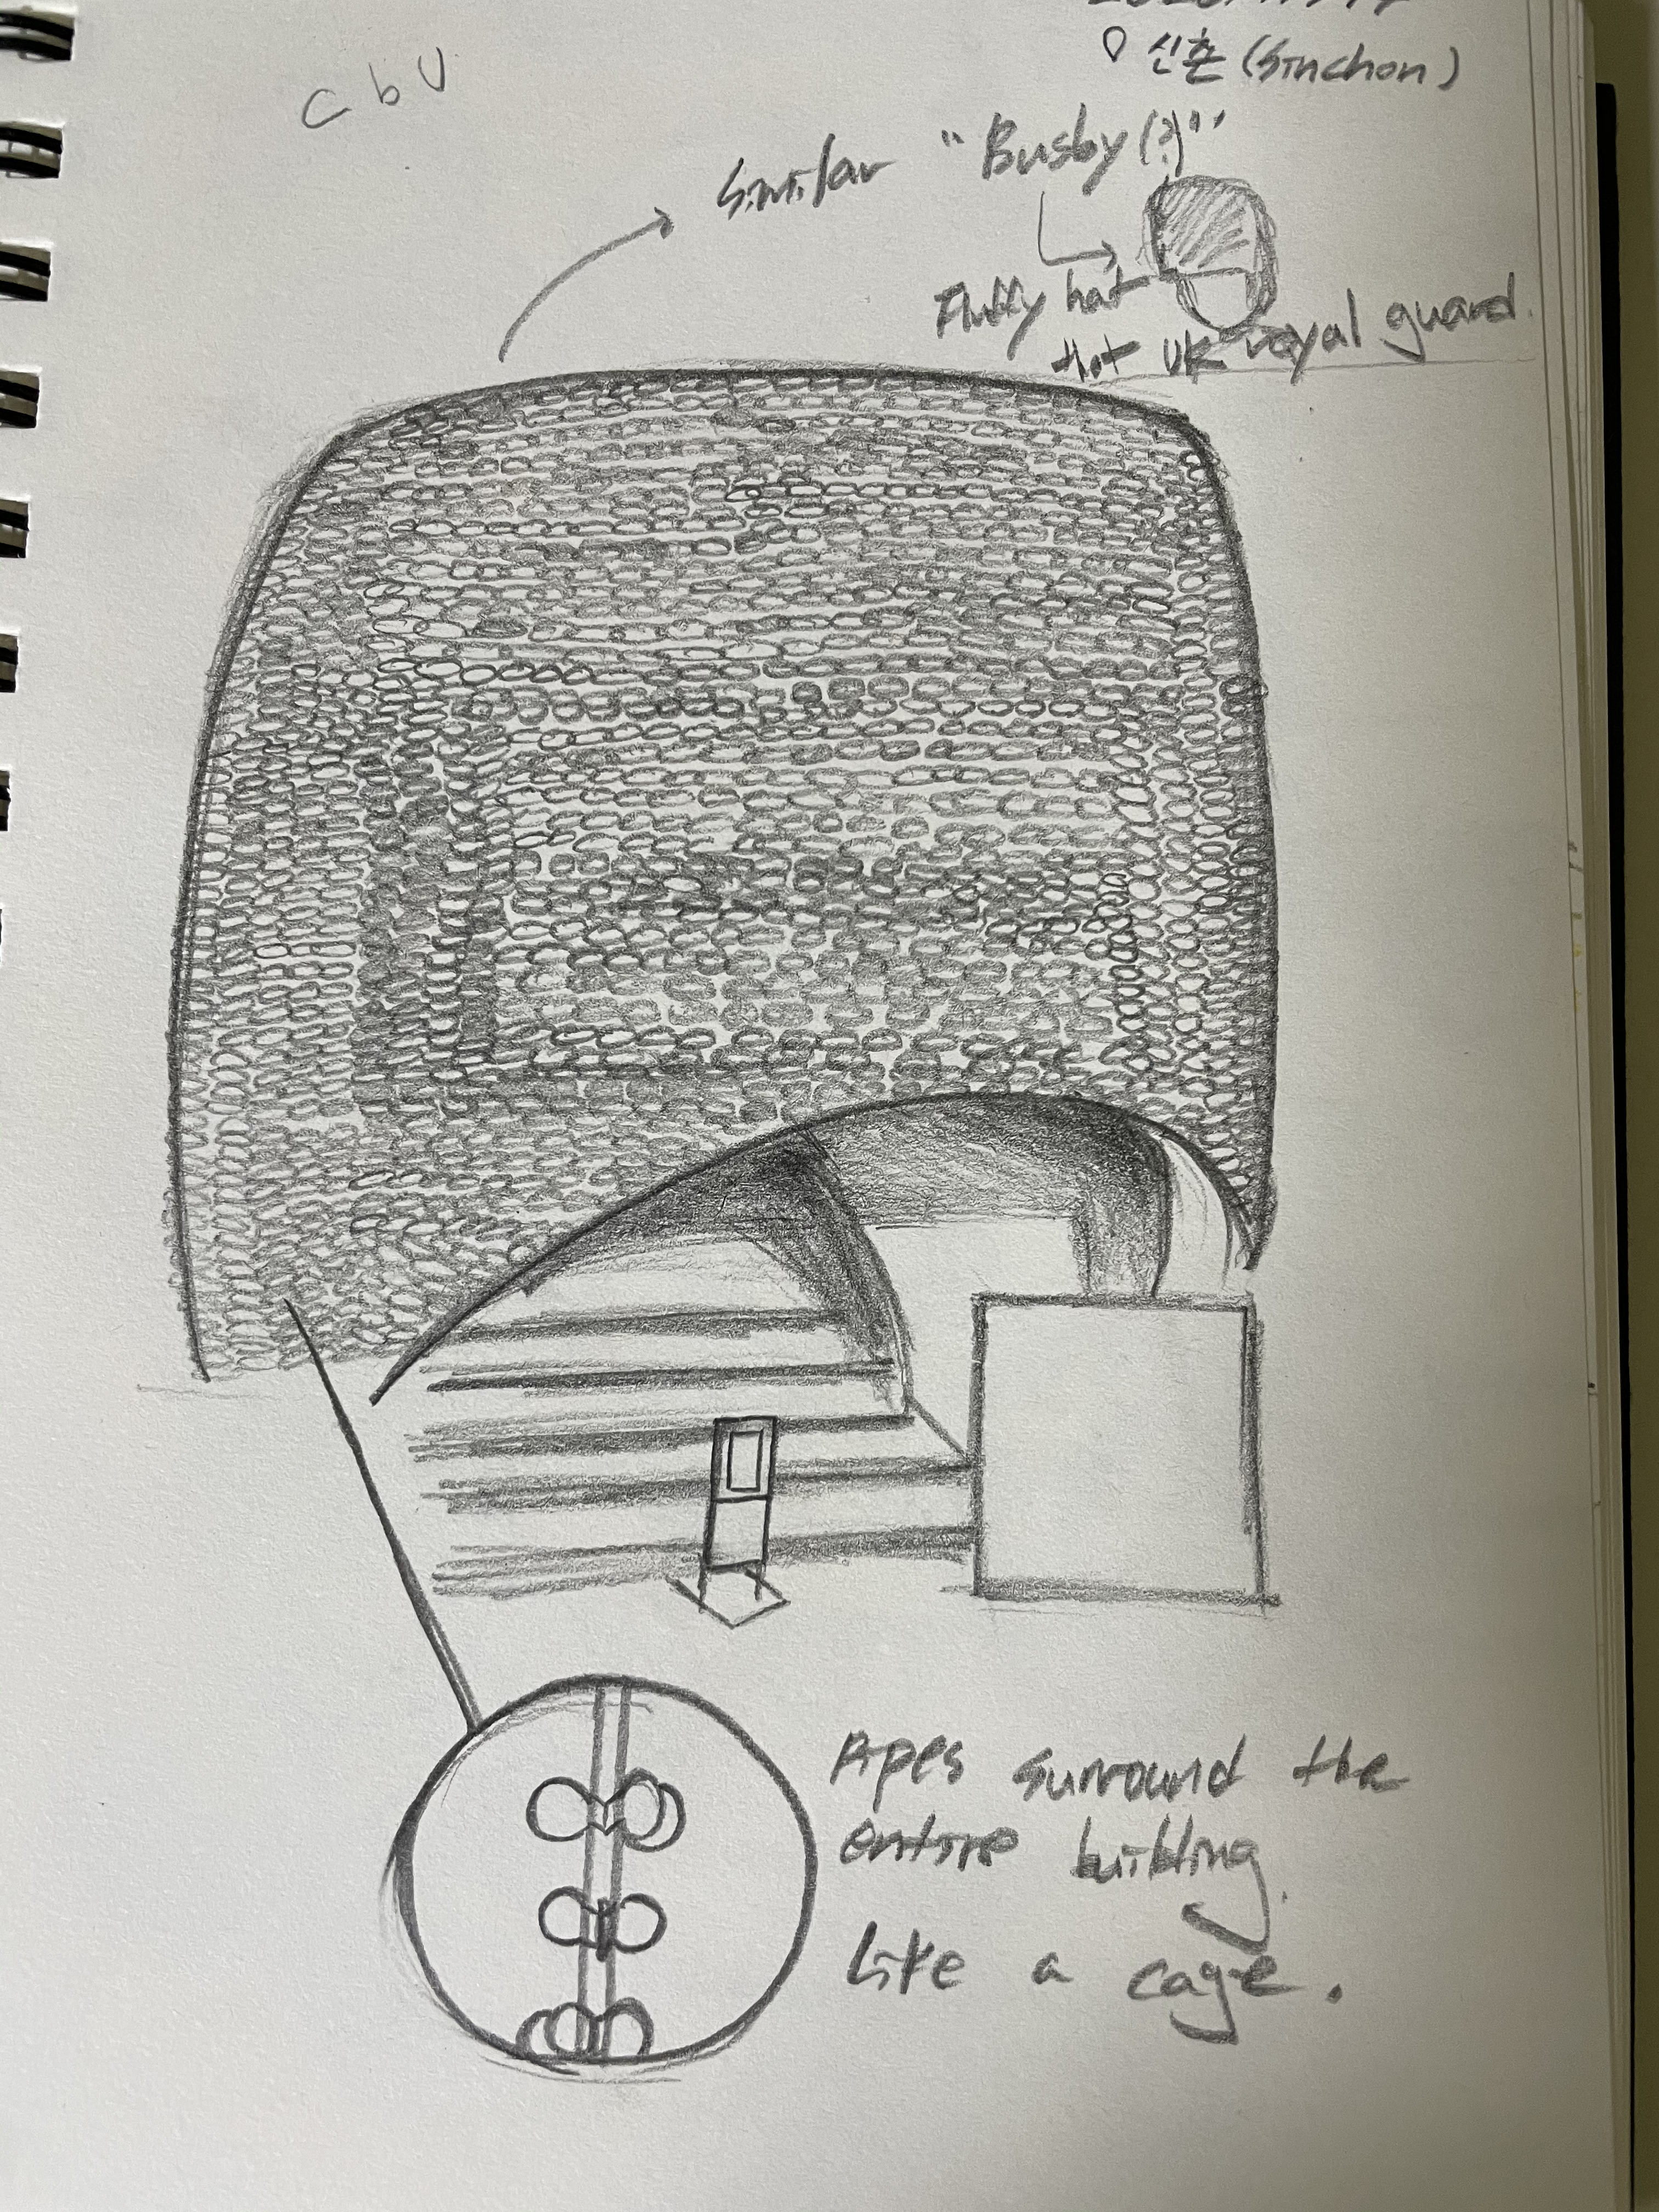 신촌 (Sinchon)
C b U
Similar "Busby(?)"
Fluffy hat
UK royal guard.
Apes surround the
entire building.
Like a cage.